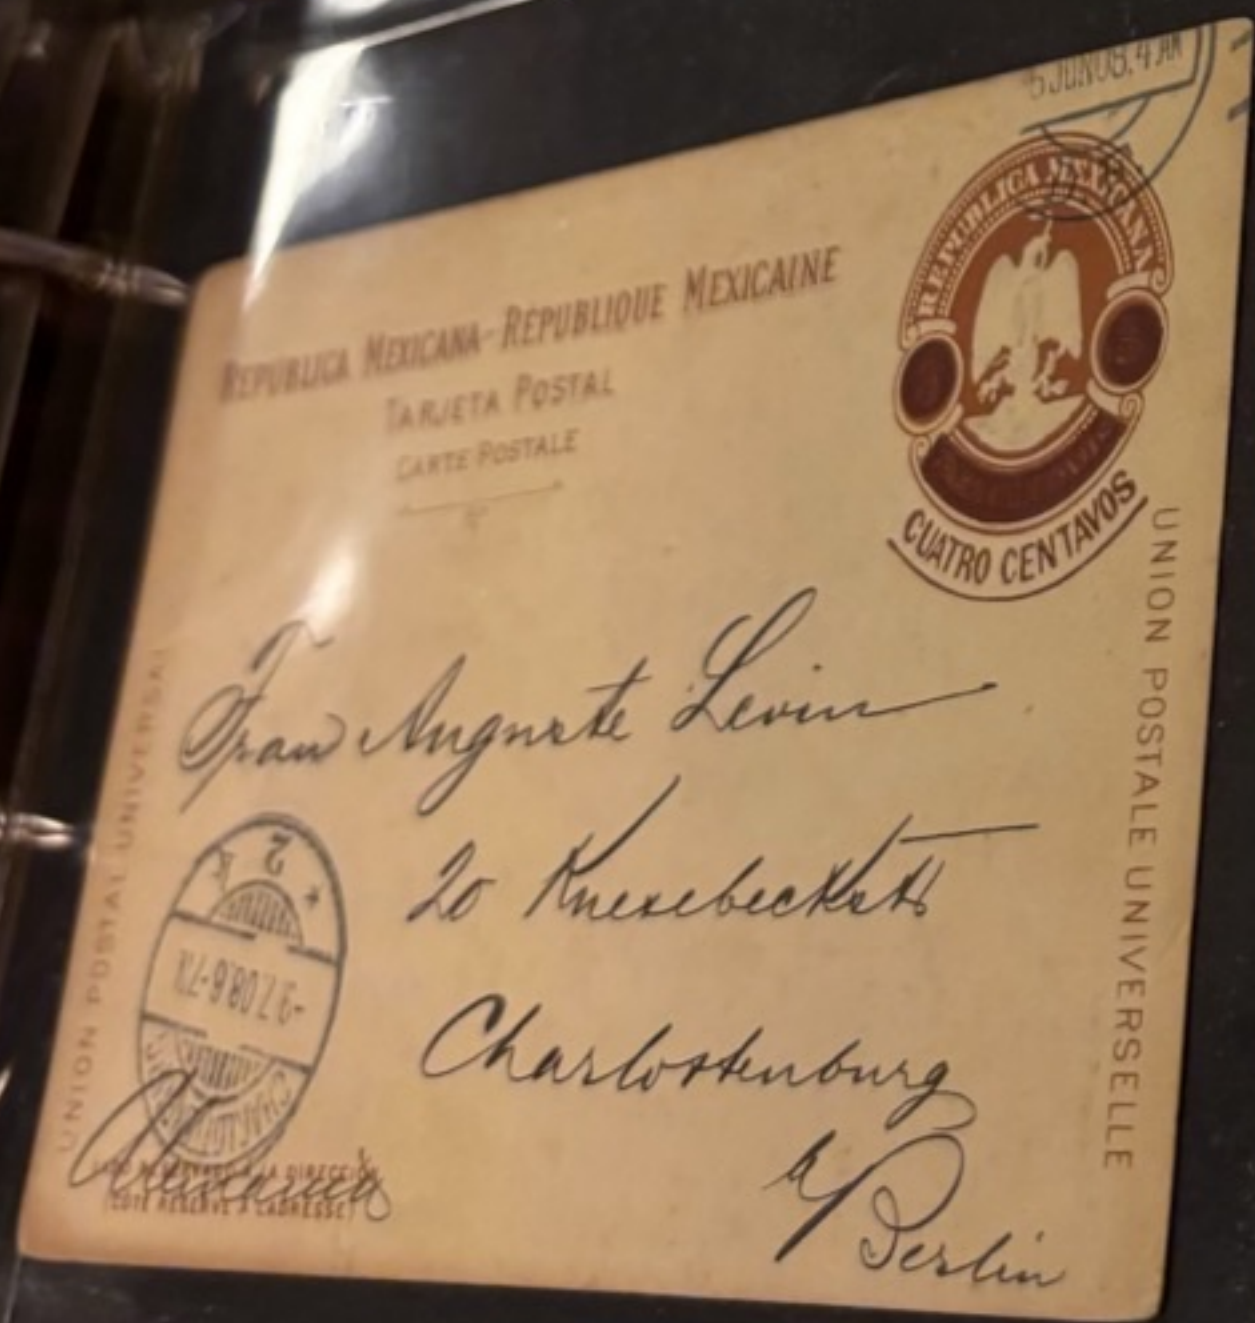 5 JUN 08. 4 AM
REPUBLICA MEXICANA
REPUBLICA MEXICANA-RÉPUBLIQUE MEXICAINE
TARJETA POSTAL
CARTE POSTALE
CUATRO CENTAVOS
UNION POSTALE UNIVERSELLE
UNION POSTAL UNIVERSAL
Frau Auguste Levin
20 Knesebeckstr
Charlottenburg
b/ Berlin
Alemania
2
-9.7.08.6-7N.
LADO RESERVADO A LA DIRECCIÓN
(CÔTÉ RÉSERVÉ A L'ADRESSE)